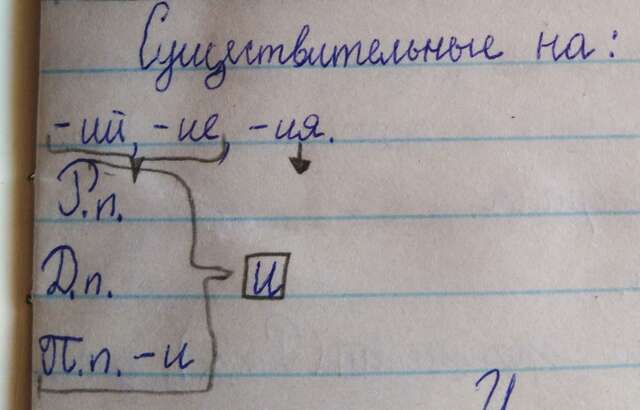 Существительные на:
-ий, -ие, -ия.
Р.п.
Д.п. и
П.п. -и